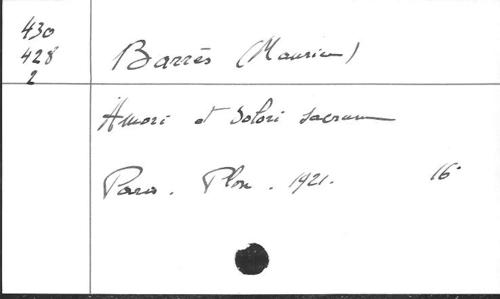 430
428
2
Barrès (Maurice)
Amori et Dolori sacrum
Paris. Plon. 1921. 16°